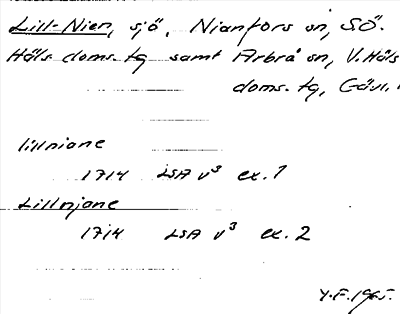 Lill-Nien, sjö, Nianfors sn, SÖ.
Häls doms. tg samt Arbrå sn, V. Häls
doms. tg, Gävl.
lillnione
1714 LSA v³ ex. 1
Lillnjone
1714 LSA v³ ex. 2
Y.F. 1965.